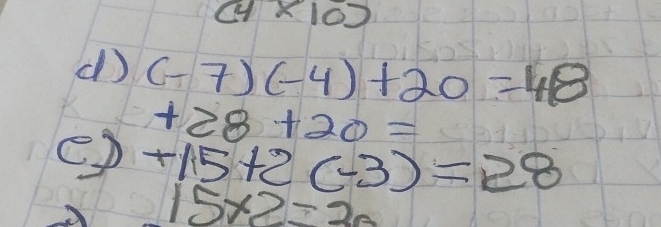 (4 × 10)
d) (-7)(-4) + 20 = 48
+28 + 20 =
c) +15 + 2 (-3) = 28
15 × 2 = 30